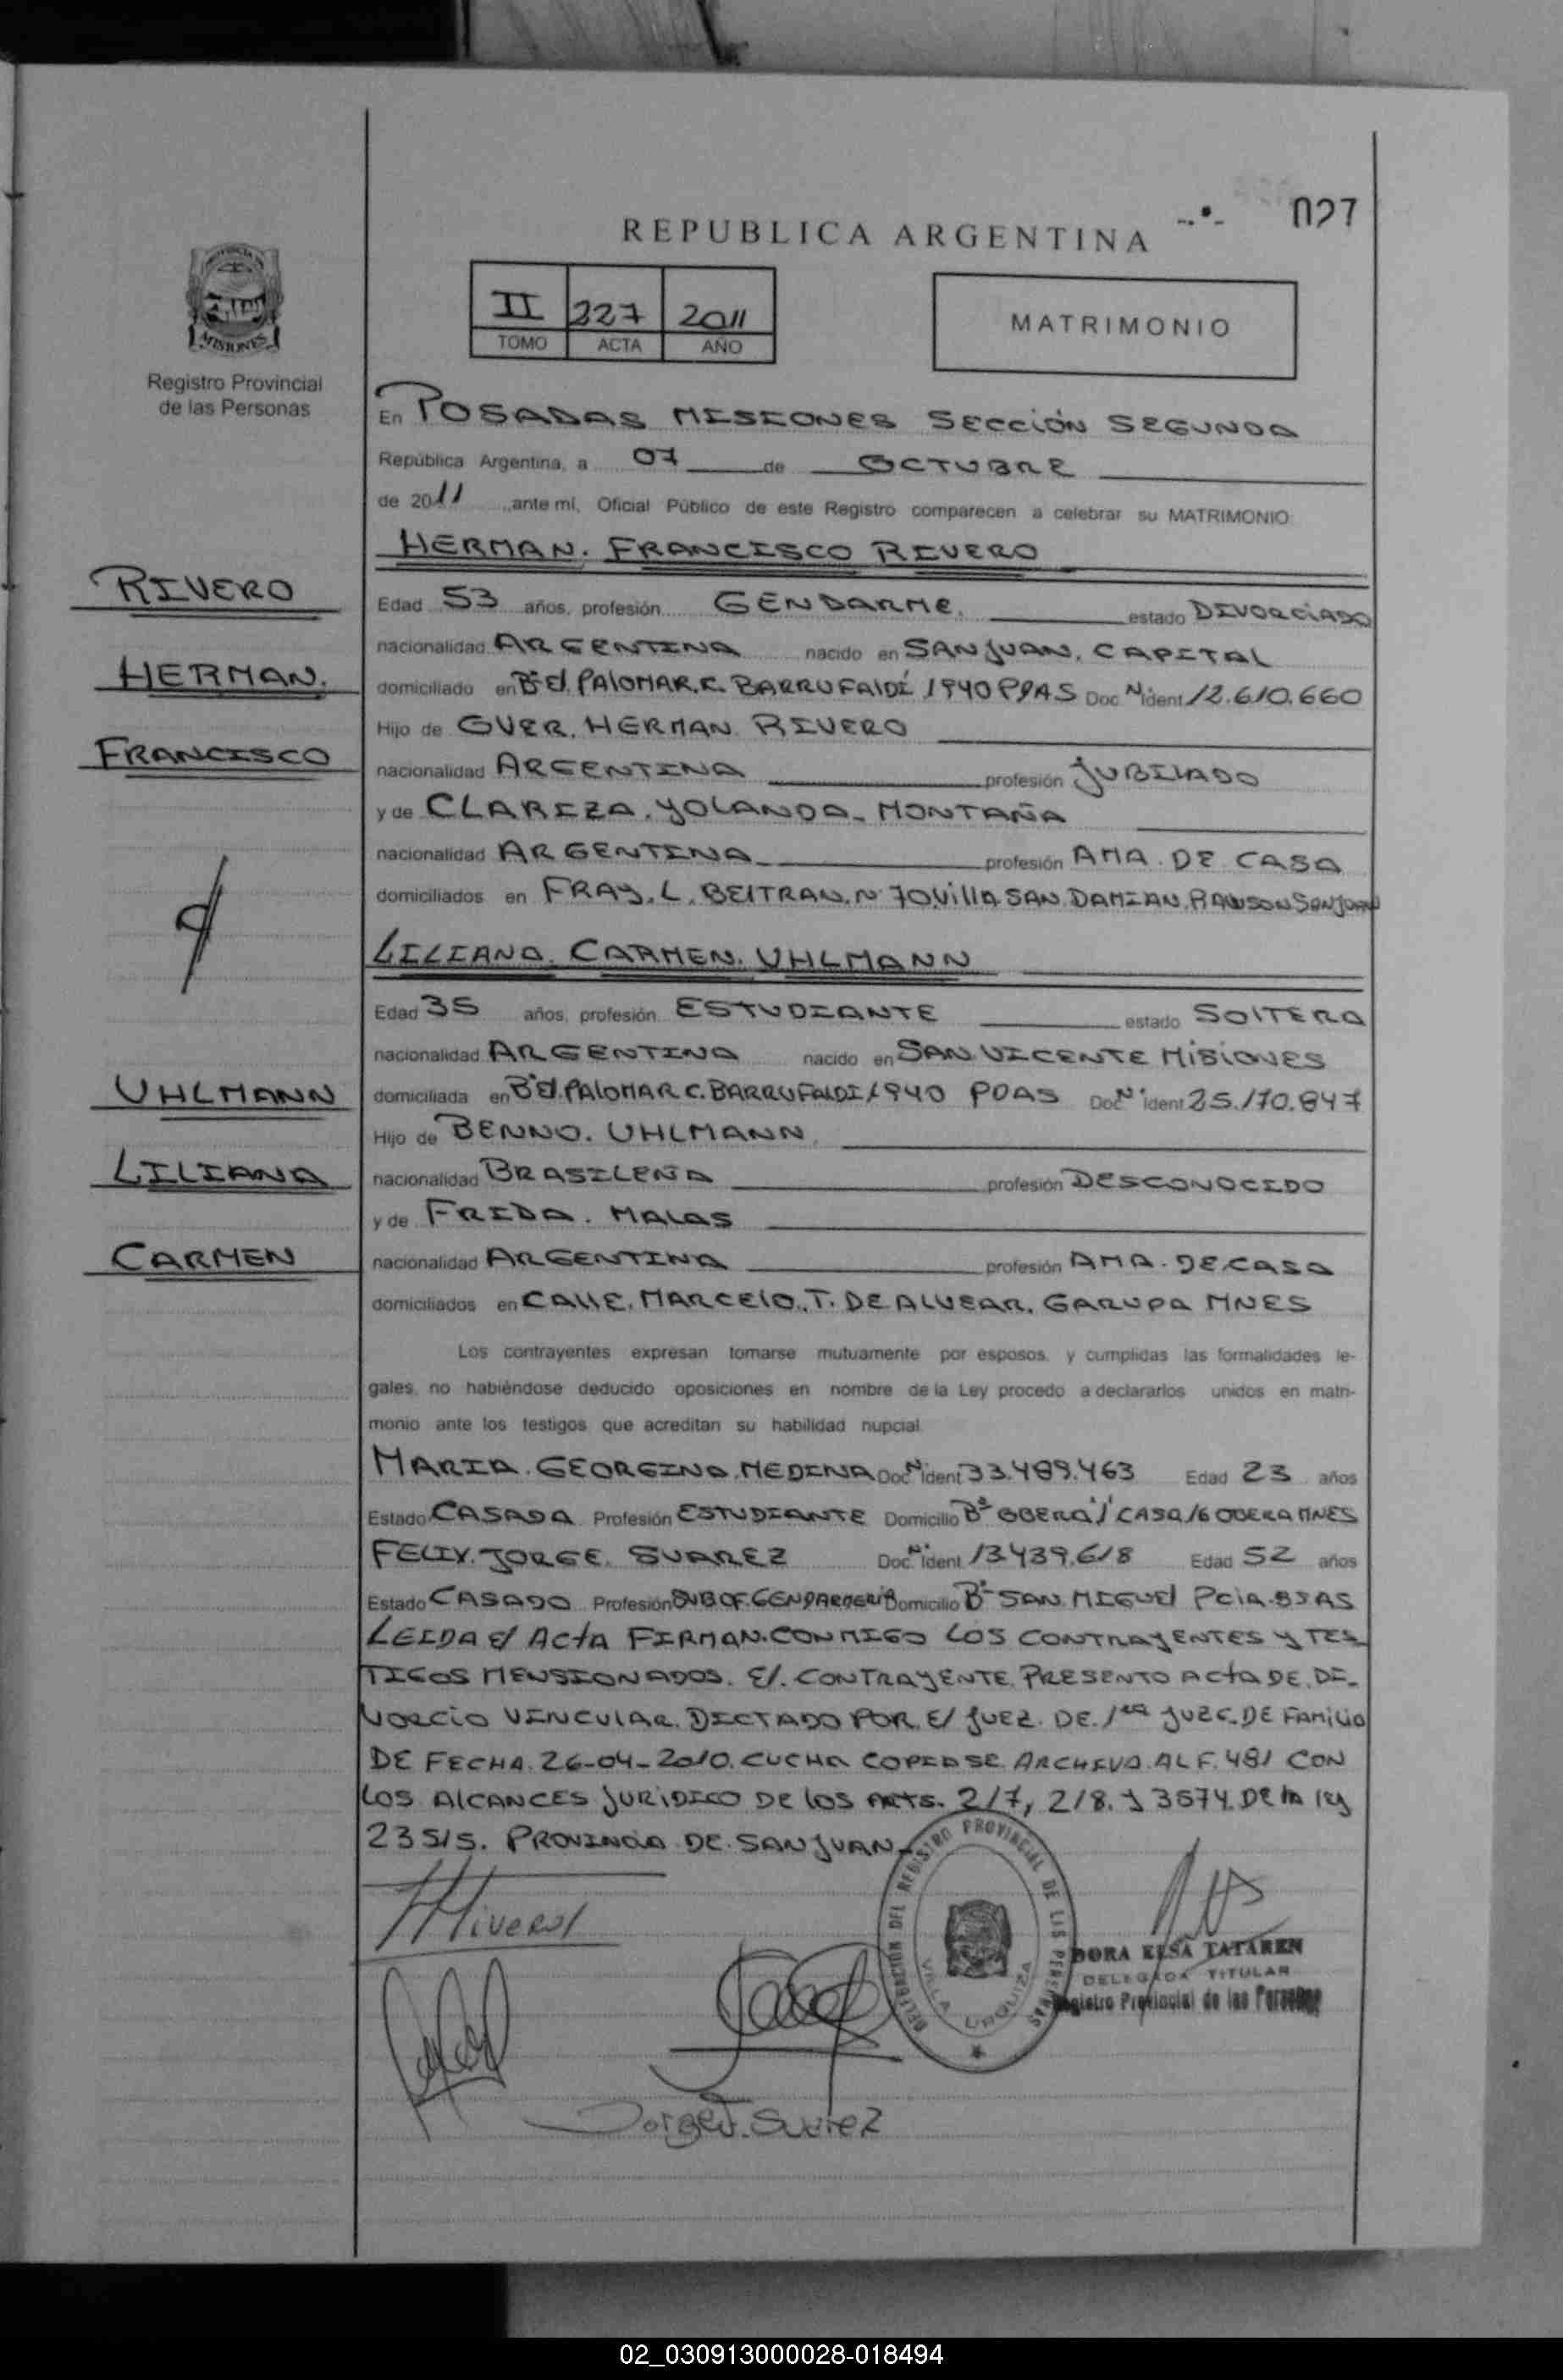 027
REPUBLICA ARGENTINA
II 227 2011
TOMO ACTA AÑO
MATRIMONIO
MISIONES
Registro Provincial
de las Personas
En POSADAS MISIONES SECCIÓN SEGUNDA
República Argentina, a 07 de OCTUBRE
de 2011 ante mí, Oficial Público de este Registro comparecen a celebrar su MATRIMONIO
HERMAN. FRANCISCO RIVERO
RIVERO
HERMAN.
FRANCISCO
Edad 53 años, profesión GENDARME. estado DIVORCIADO
nacionalidad ARGENTINA nacido en SAN JUAN. CAPITAL
domiciliado en Bº El PALOMAR.C. BARRUFALDI 1940 PDAS Doc Nº ident 12.610.660
Hijo de GUER. HERMAN. RIVERO
nacionalidad ARGENTINA profesión JUBILADO
y de CLARIZA. YOLANDA. MONTAÑA
nacionalidad ARGENTINA profesión AMA. DE CASA
domiciliados en FRAY. L. BELTRAN. Nº 70 Villa SAN DAMIAN. RAWSON SAN JUAN
LILIANA. CARMEN. UHLMANN
UHLMANN
LILIANA
CARMEN
Edad 35 años, profesión ESTUDIANTE estado SOLTERA
nacionalidad ARGENTINA nacido en SAN VICENTE MISIONES
domiciliada en Bº El PALOMAR C. BARRUFALDI 1940 PDAS Doc Nº ident 25.170.847
Hijo de BENNO. UHLMANN.
nacionalidad BRASILEÑA profesión DESCONOCIDO
y de FRIDA. MALAS
nacionalidad ARGENTINA profesión AMA. DE CASA
domiciliados en CALLE. MARCELO. T. DE ALVEAR. GARUPA MNES
Los contrayentes expresan tomarse mutuamente por esposos, y cumplidas las formalidades le-
gales, no habiéndose deducido oposiciones en nombre de la Ley procedo a declararlos unidos en matri-
monio ante los testigos que acreditan su habilidad nupcial
MARIA. GEORGINA. MEDINA Doc Nº ident 33.489.463 Edad 23 años
Estado CASADA Profesión ESTUDIANTE Domicilio Bº OBERA 1 CASA 16 OBERA MNES
FELIX. JORGE. SUAREZ Doc. Nº ident 13.439.618 Edad 52 años
Estado CASADO Profesión SUBOF. GENDARMERIA Domicilio Bº SAN. MIGUEL PCIA. BS AS
LEIDA El ACTA FIRMAN. CONMIGO LOS CONTRAYENTES Y TES
TIGOS MENSIONADOS. El. CONTRAYENTE PRESENTO ACTA DE. DI-
VORCIO VINCULAR. DICTADO POR. El JUEZ. DE. 1ER JUZG. DE FAMILIA
DE FECHA. 26-04-2010. CUCHA COPIA SE ARCHIVA AL F. 481 CON
LOS ALCANCES JURIDICO DE LOS ARTS. 217, 218. Y 3574 DE la ley
23515. PROVINCIA DE SAN JUAN.
HRivero
DELEGACIÓN DEL REGISTRO PROVINCIAL DE LAS PERSONAS
VILLA URQUIZA
DORA ELSA TATAREN
DELEGADA TITULAR
Registro Provincial de las Personas
Jorge F. Suarez
02_030913000028-018494